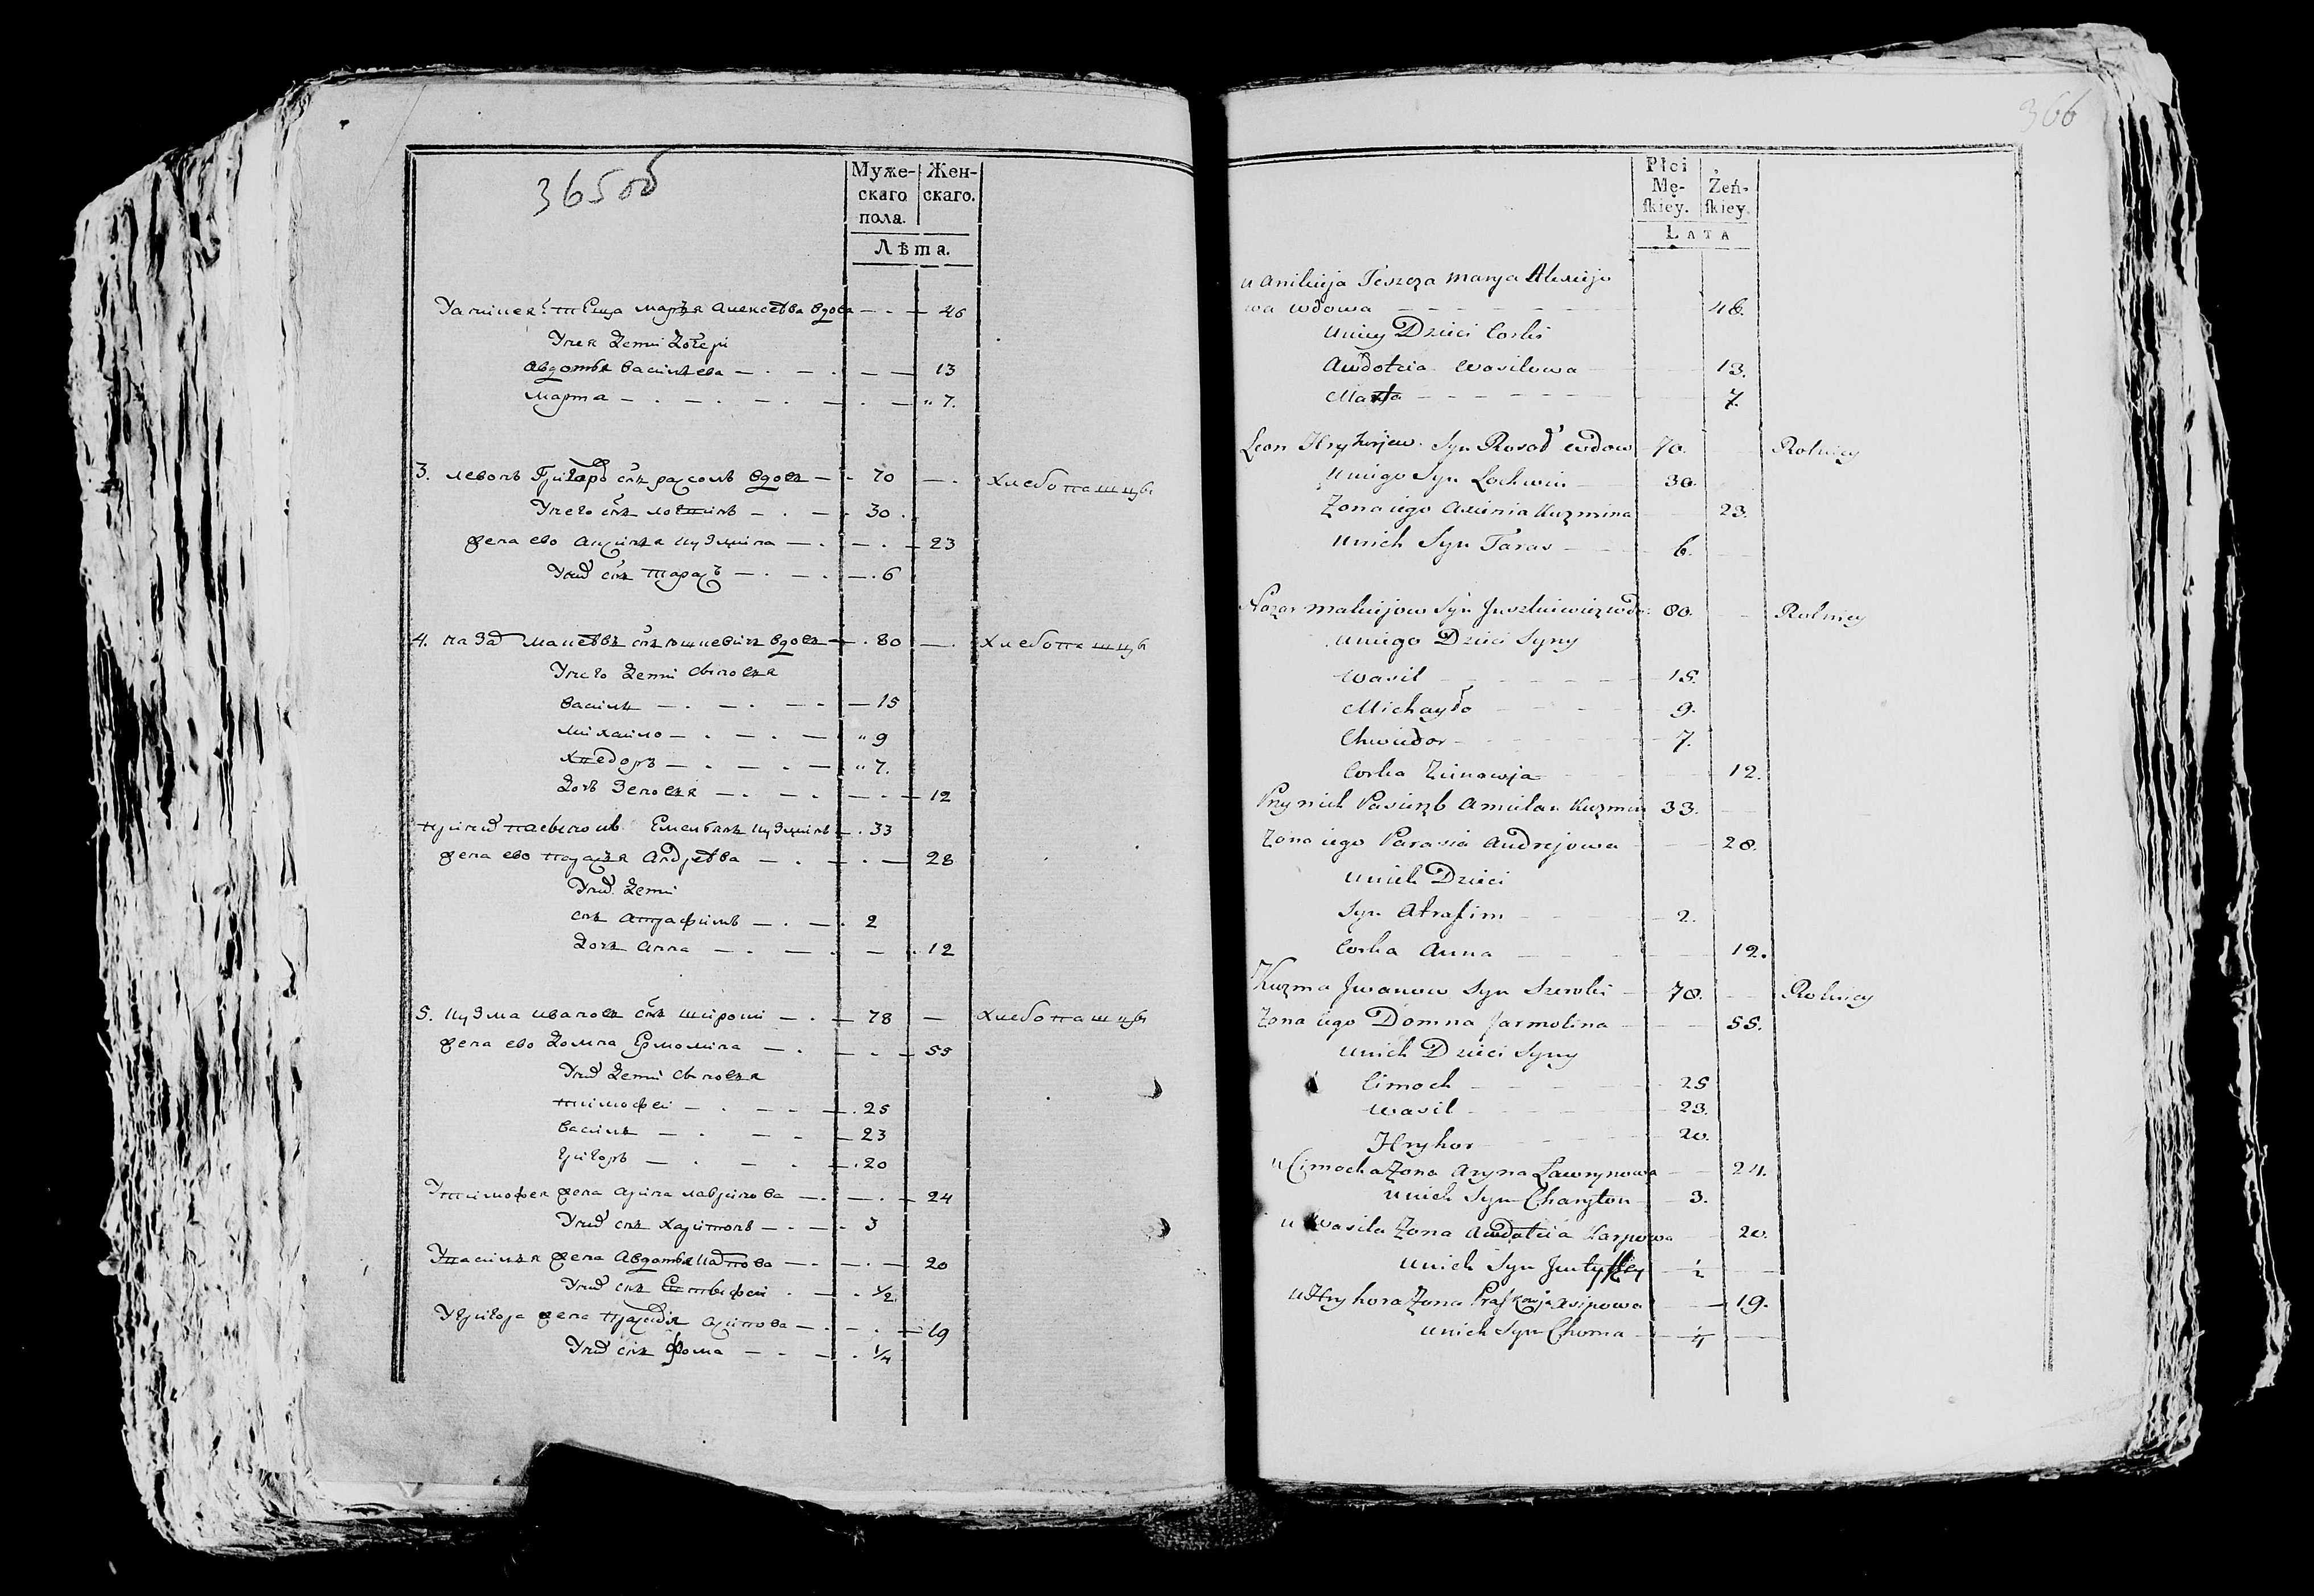 365об
Муже-
скаго
пола.
Жен-
скаго.
Лѣта.
теща Марья Алексеева вдова 46
Унея дети дочери
Авдотья Васильева 13
Марта 7.
3. Левонъ Григор снъ вдовъ 70 хлебопашцы
Унего снъ 30
жена ево Кузмина 23
Уних снъ Тарасъ 6
4. Назар Матвеевъ снъ Юшкевичъ вдовъ 80 хлебопашцы
Унего дети сыновья
Василь 15
Михайло 9
Хведоръ 7.
дочь Зеновья 12
приних Емельянъ Кузминъ 33
жена ево Парасья Андреева 28
Уних дети
снъ Атрафимъ 2
дочь Анна 12
5. Кузма Ивановъ снъ Широки 78 хлебопашцы
жена ево Домна Ермолина 55
Уних дети сыновья
Тимофеи 25
Василь 23
Григоръ 20
Утимофея жена Арина Лавринова 24
Уних снъ Харитонъ 3
Увасилья жена Авдотья Карпова 20
Уних снъ 1/2
Угригора жена Осипова 19
Уних снъ Фома 1/4
366
Płci
Mę-
skiey.
Żeń-
skiey.
LATA
Teszcza Marya Alexiejo
wa wdowa 46.
uniey Dzieci Corki
Awdotzia Wasilowa 13.
Marta 7.
Leon Hryhorjew Syn Rosoł wdow 70. Rolnicy
uniego Syn 30.
Zona iego Axinia Kuzmina 23.
unich Syn Taras 6.
Nazar Syn wdo: 80. Rolnicy
uniego Dzieci Syny
Wasil 15.
Michayło 9.
Chwiedor 7.
Corka Zienowja 12.
Przy nich Pasierzb Amielan Kuzmin 33.
Zona iego Parasia Andrejowa 28.
unich Dzieci
Syn Atrafim 2.
Corka Anna 12.
Kuzma Jwanow Syn Szeroki 78. Rolnicy
Zona iego Domna Jarmolina 55.
unich Dzieci Syny
Cimoch 25
Wasil 23.
Hryhor 20.
u Cimocha Zona Aryna Ławrynowa 24.
unich Syn Charyton 3.
u Wasila Zona Awdotcia Karpowa 20.
unich Syn 1/2
u Hryhora Zona Praskowja Asipowa 19.
unich Syn Choma 1/4